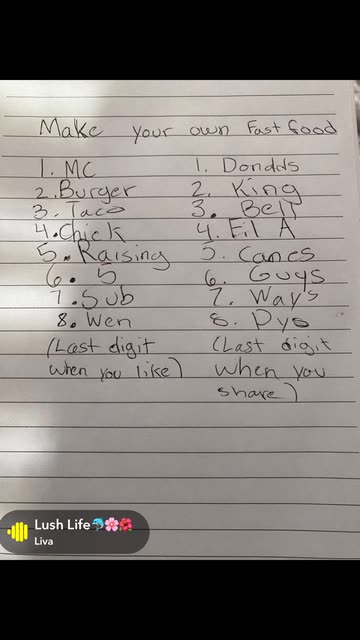 Make your own Fast food
1. MC 1. Dondds
2. Burger 2. King
3. Taco 3. Bell
4. Chick 4. Fil A
5. Raising 5. Canes
6. 5 6. Guys
7. Sub 7. Ways
8. Wen 8. Dys
(Last digit (Last digit
when you like) when you
share)
Lush Life🐬🌸🌺
Liva